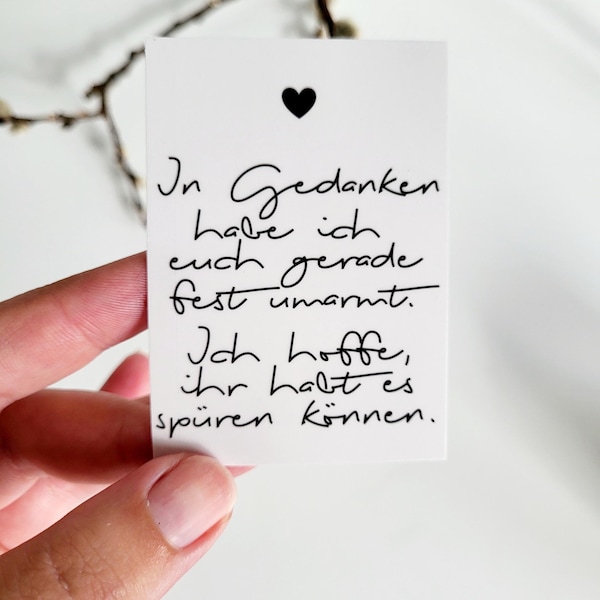 In Gedanken
habe ich
euch gerade
fest umarmt.
Ich hoffe,
ihr habt es
spüren können.